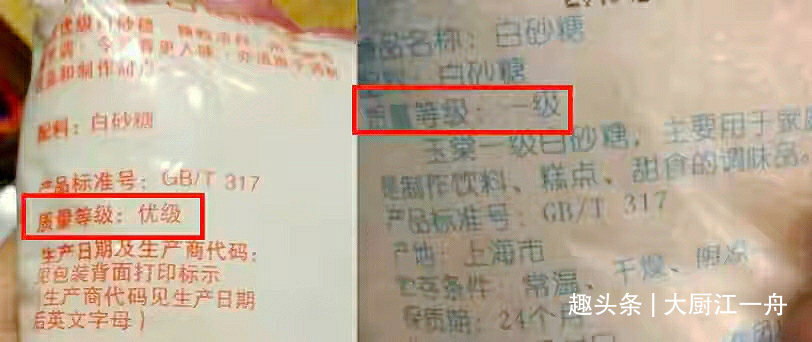 优级白砂糖
配料：白砂糖
产品标准号：GB/T 317
质量等级：优级
生产日期及生产商代码：
见包装背面打印标示
生产商代码见生产日期
后英文字母）
品名称：白砂糖
白砂糖
质量等级：一级
玉棠一级白砂糖，主要用于家庭
制作饮料、糕点、甜食的调味品。
产品标准号：GB/T 317
产地：上海市
条件 常温、干燥、阴凉
保质期：24个月
趣头条 | 大厨江一舟